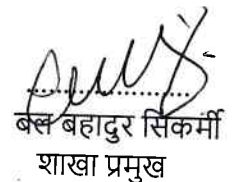 बेल बहादुर सिकर्मी
शाखा प्रमुख